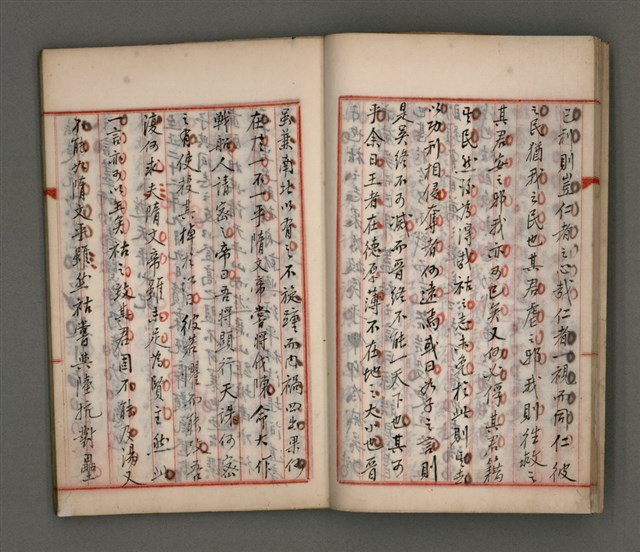 已利則豈仁者之心哉仁者一視而同仁彼
之民猶我之民也其君虐之邪我則往救之
其君安之邪我亦可已矣又何必俘其君藉
其民然後為得哉祜之志未免於此則自古
以功利相侵奪者何遠焉或曰如子之言則
是吳終不可滅而晉終不能一天下也其可
乎余曰王者在德厚薄不在地之大小也晉
雖兼南北以有之不旋踵而內禍四出果何
在於一不一乎隋文帝嘗將伐陳命大作
戰船人請密之帝曰吾將顯行天誅何密
之有使投其柹於江曰彼若懼而能改吾
復何求夫隋文帝雖未足為賢主然此
一言可以王矣祜之致其君固不能及湯又
不能如隋文乎雖然祜嘗與陸抗對壘